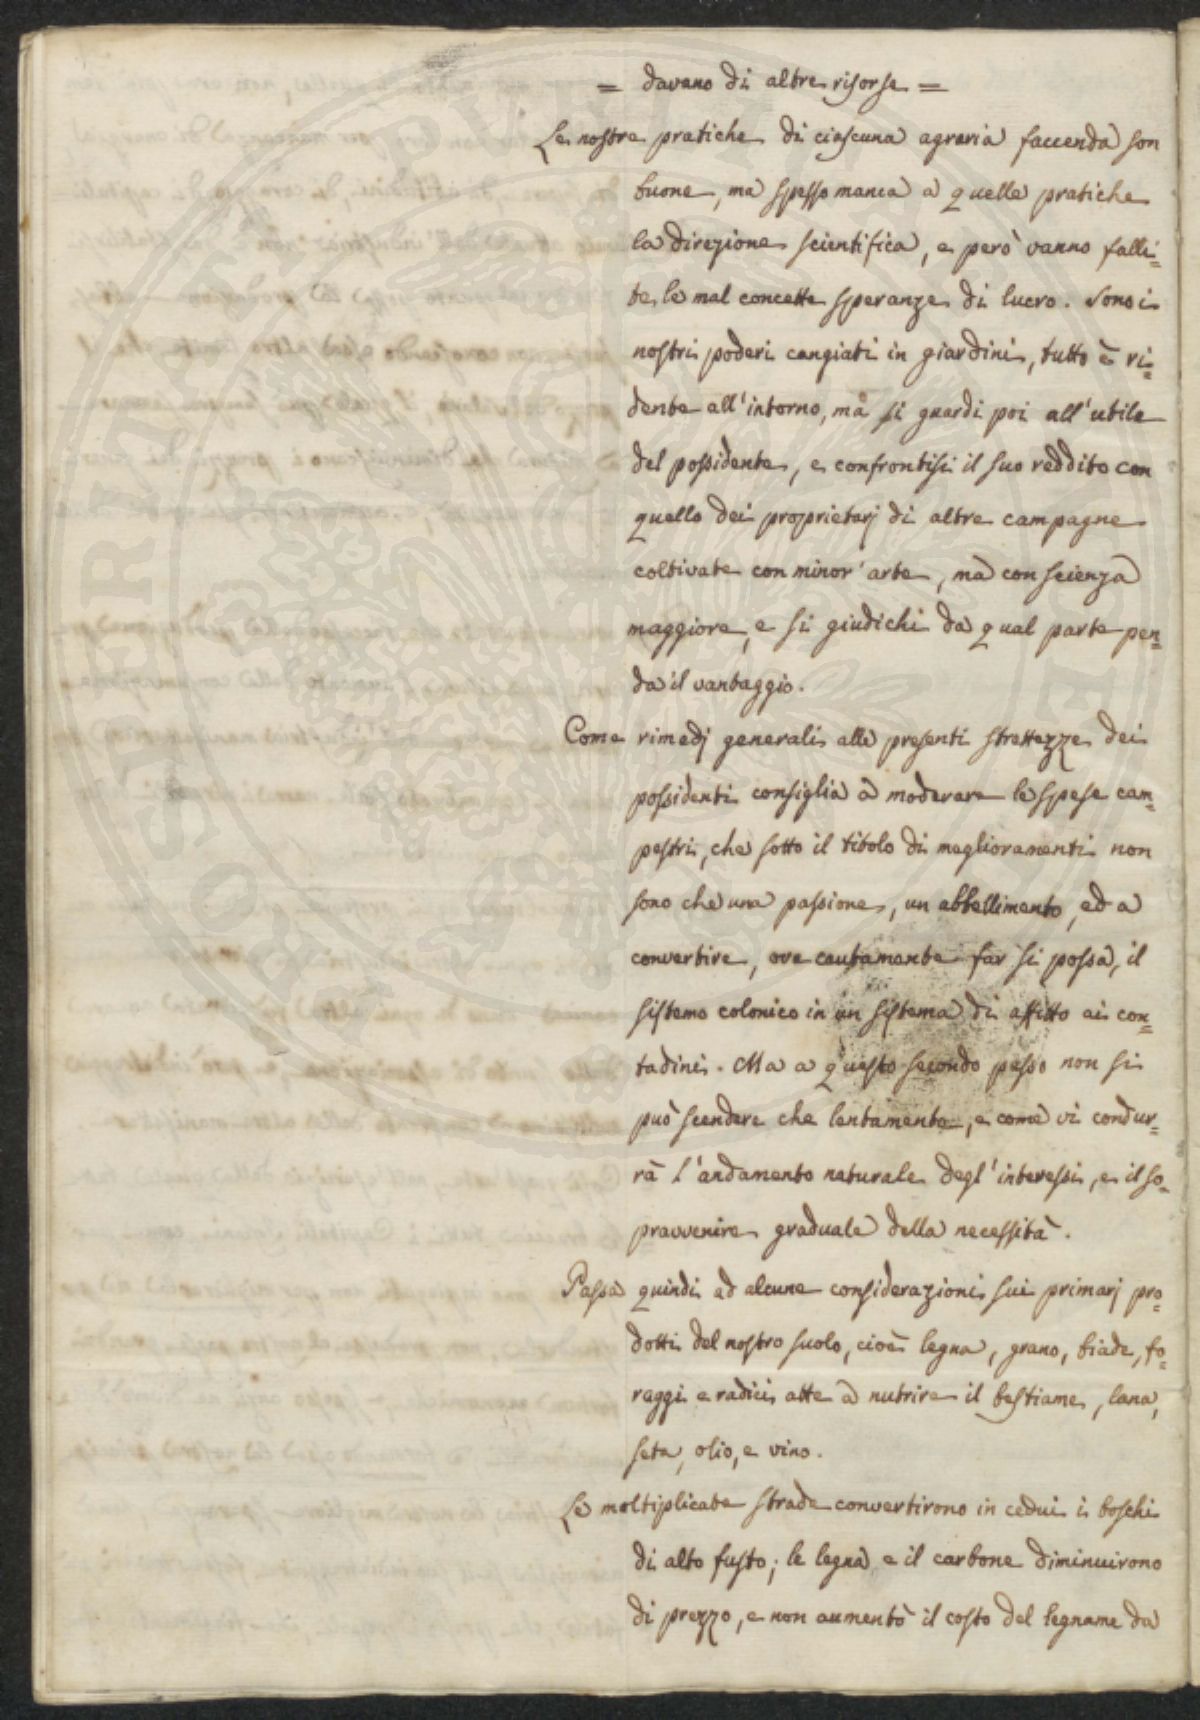 = davano di altre risorse =
Le nostre pratiche di ciascuna agraria faccenda son
buone, ma spesso manca a quelle pratiche
la direzione scientifica, e però vanno falli=
te le mal concette speranze di lucro. Sono i
nostri poderi cangiati in giardini, tutto è ri=
dente all'intorno, ma si guardi poi all'utile
del possidente, e confrontisi il suo reddito con
quello dei proprietarj di altre campagne
coltivate con minor' arte, ma con scienza
maggiore, e si giudichi da qual parte pen=
da il vantaggio.
Come rimedj generali alle presenti strettezze dei
possidenti consiglia a moderare le spese cam=
pestri, che sotto il titolo di miglioramenti non
sono che una passione, un abbellimento, ed a
convertire, ove cautamente far si possa, il
sistema colonico in un sistema di affitto ai con=
tadini. Ma a questo secondo passo non si
può scendere che lentamente, e come vi condur=
rà l'andamento naturale degl'interessi, e il so=
pravvenire graduale della necessità.
Passa quindi ad alcune considerazioni sui primarj pro=
dotti del nostro suolo, cioè legna, grano, biade, fo=
raggi e radici atte a nutrire il bestiame, lana,
seta, olio, e vino.
Le moltiplicate strade convertirono in cedui i boschi
di alto fusto; le legna e il carbone diminuirono
di prezzo, e non aumentò il costo del legname da